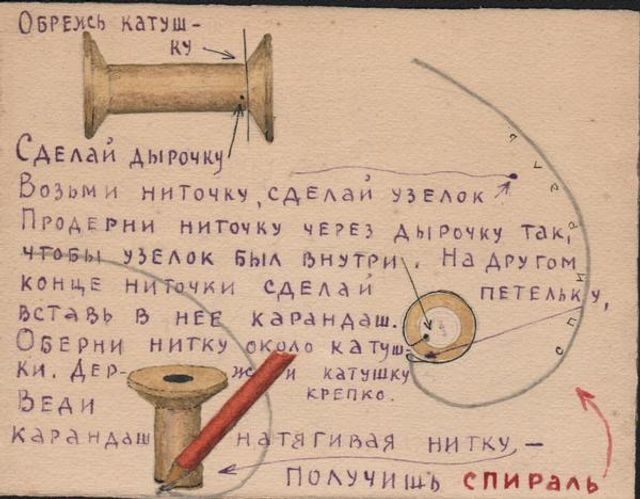 Обрежь катуш-
ку
Сделай дырочку
Возьми ниточку, сделай узелок
Продерни ниточку через дырочку так,
чтобы узелок был внутри. На другом
конце ниточки сделай петельку,
вставь в нее карандаш.
Оберни нитку около катуш-
ки. Держи катушку
крепко.
Веди
карандаш натягивая нитку, –
получишь спираль
спираль